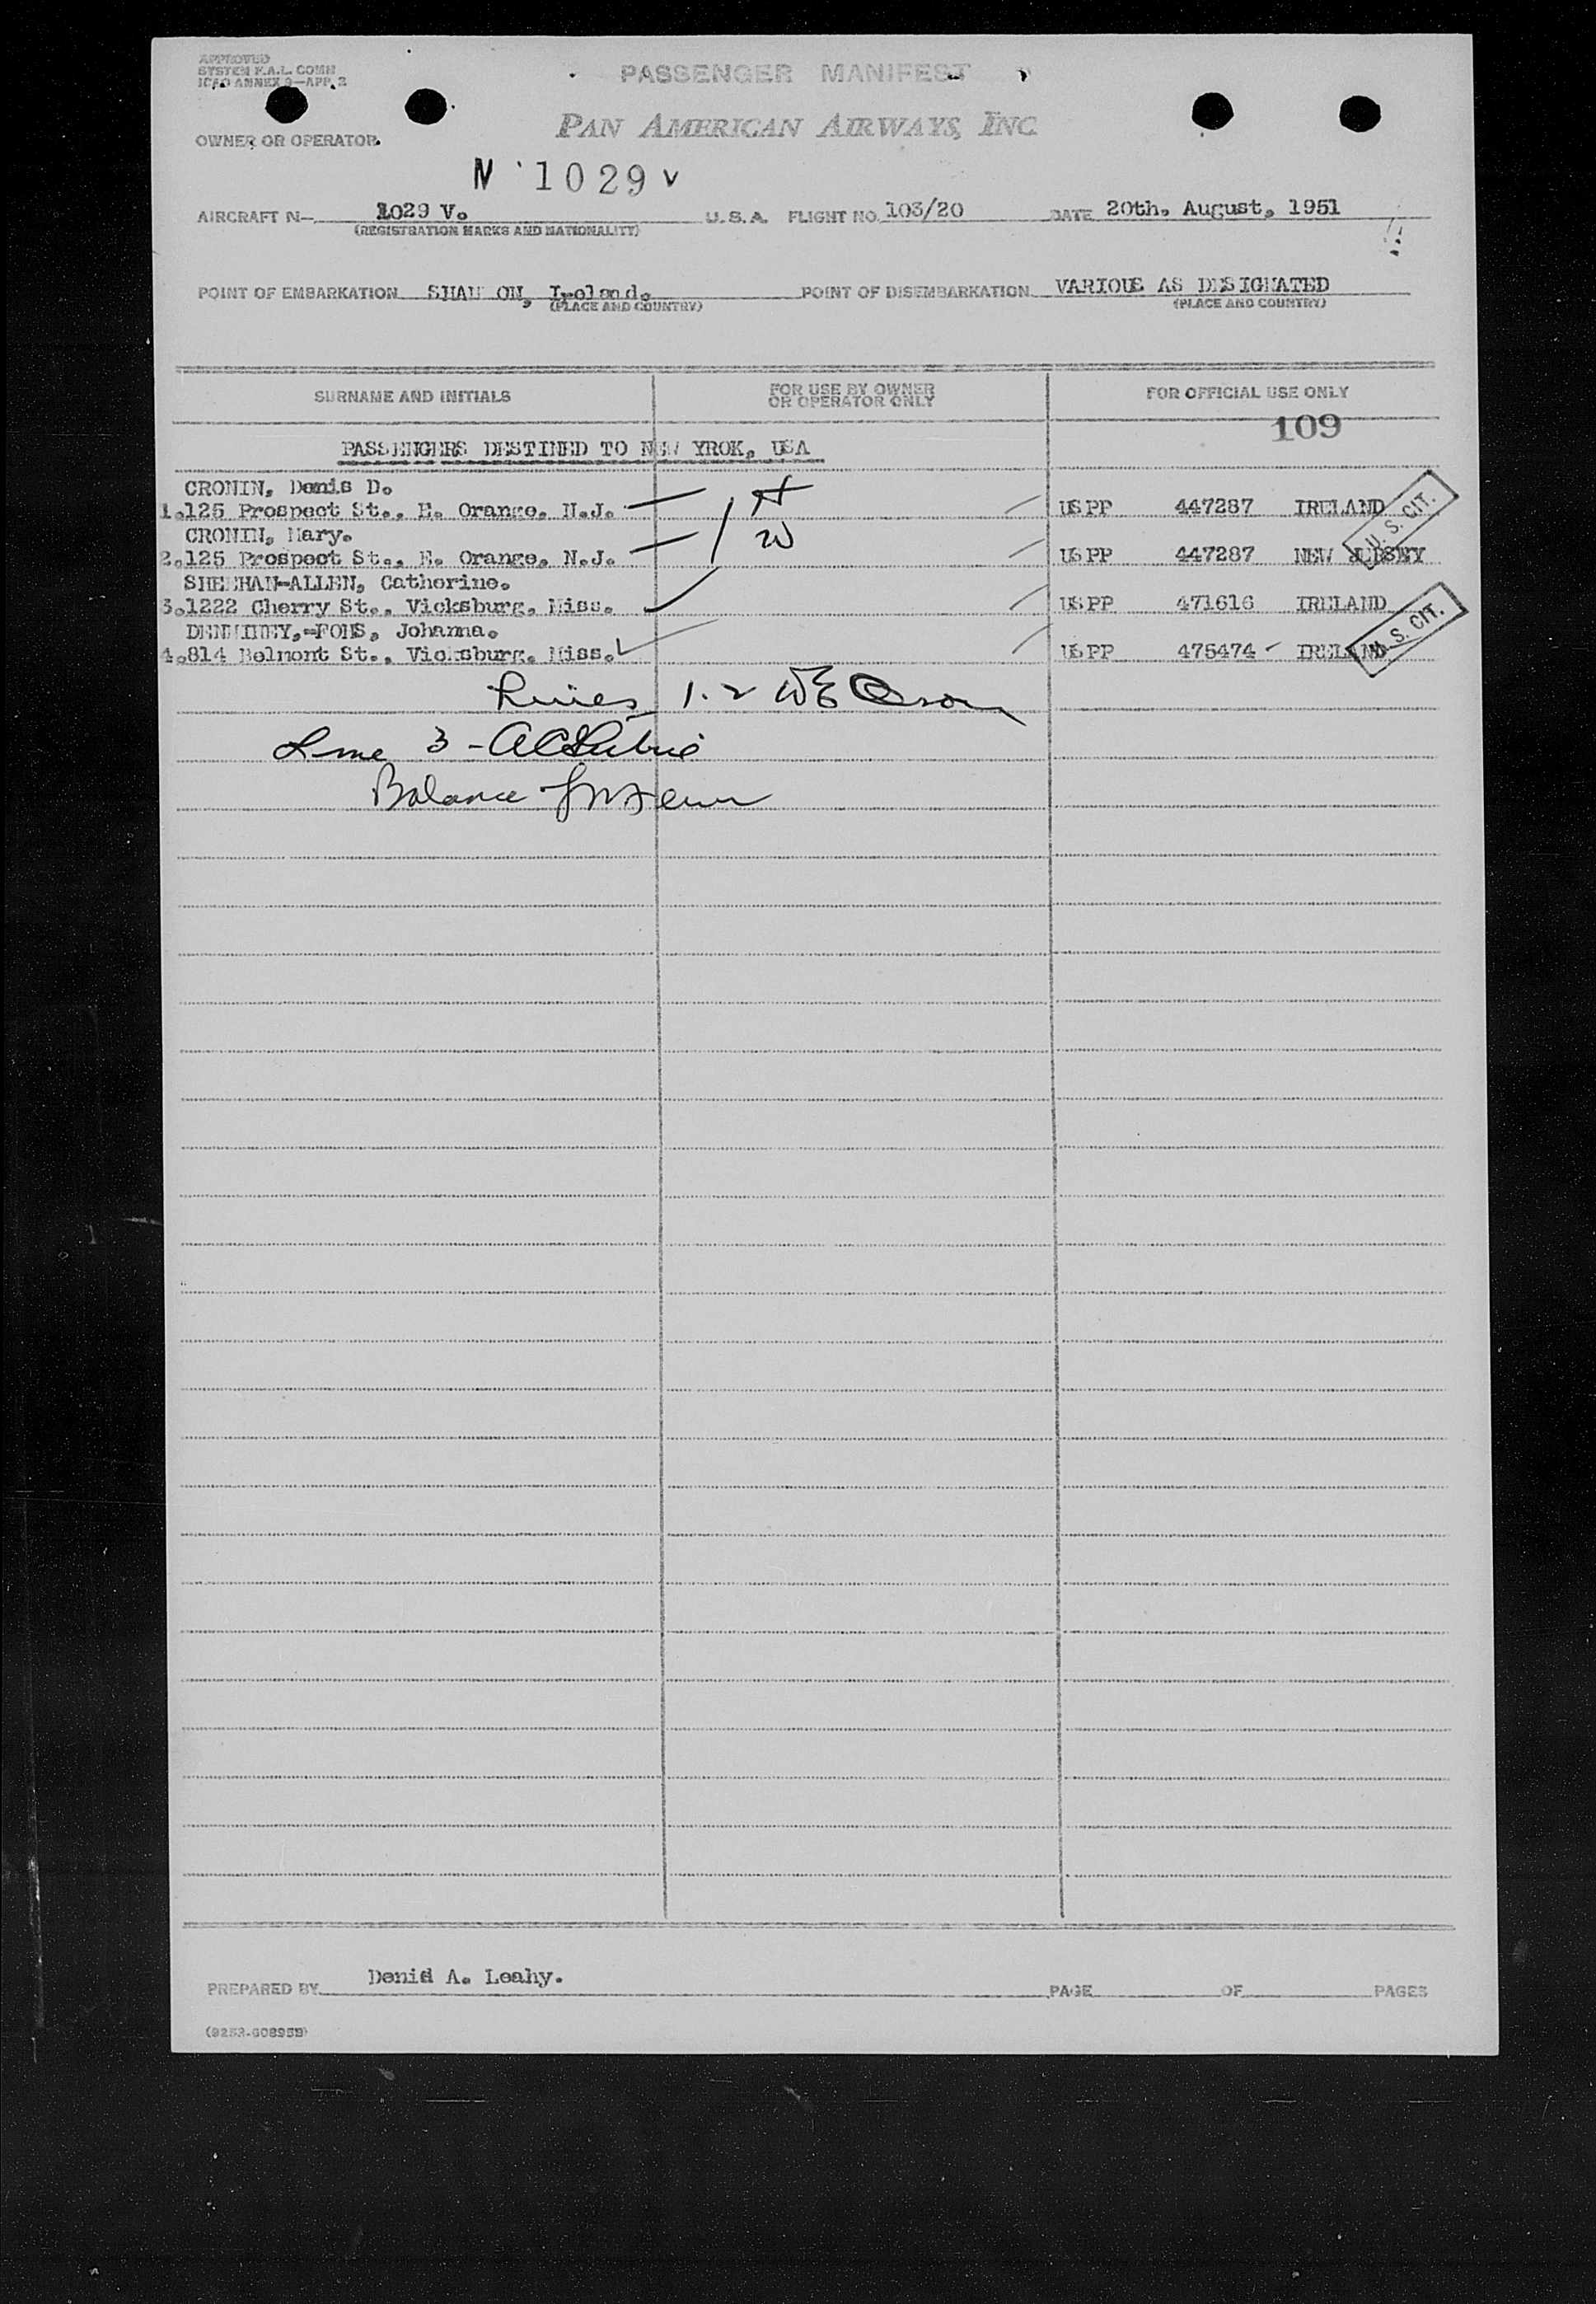 APPROVED
SYSTEM F.A.L. COMM
ICAO ANNEX 9—APP. 2
PASSENGER MANIFEST
OWNER OR OPERATOR
PAN AMERICAN AIRWAYS, INC.
N 1029 V
AIRCRAFT N— 1029 V. U.S.A. FLIGHT NO. 103/20 DATE 20th. August, 1951
(REGISTRATION MARKS AND NATIONALITY)
POINT OF EMBARKATION SHANNON, Ireland. POINT OF DISEMBARKATION VARIOUS AS DESIGNATED
(PLACE AND COUNTRY) (PLACE AND COUNTRY)
SURNAME AND INITIALS FOR USE BY OWNER OR OPERATOR ONLY FOR OFFICIAL USE ONLY
109
PASSENGERS DESTINED TO NEW YROK, USA
CRONIN, Denis D.
1.125 Prospect St., E. Orange, N.J. US PP 447287 IRELAND
CRONIN, Mary.
2.125 Prospect St., E. Orange, N.J. US PP 447287 NEW JERSEY
U.S. CIT.
SHEEHAN-ALLEN, Catherine.
3.1222 Cherry St., Vicksburg, Miss. US PP 471616 IRELAND
Johanna.
4.814 Belmont St., Vicksburg, Miss. US PP 475474 IRELAND
U.S. CIT.
Lines 1-2
Line 3 -
Balance
PREPARED BY A. Leahy. PAGE OF PAGES